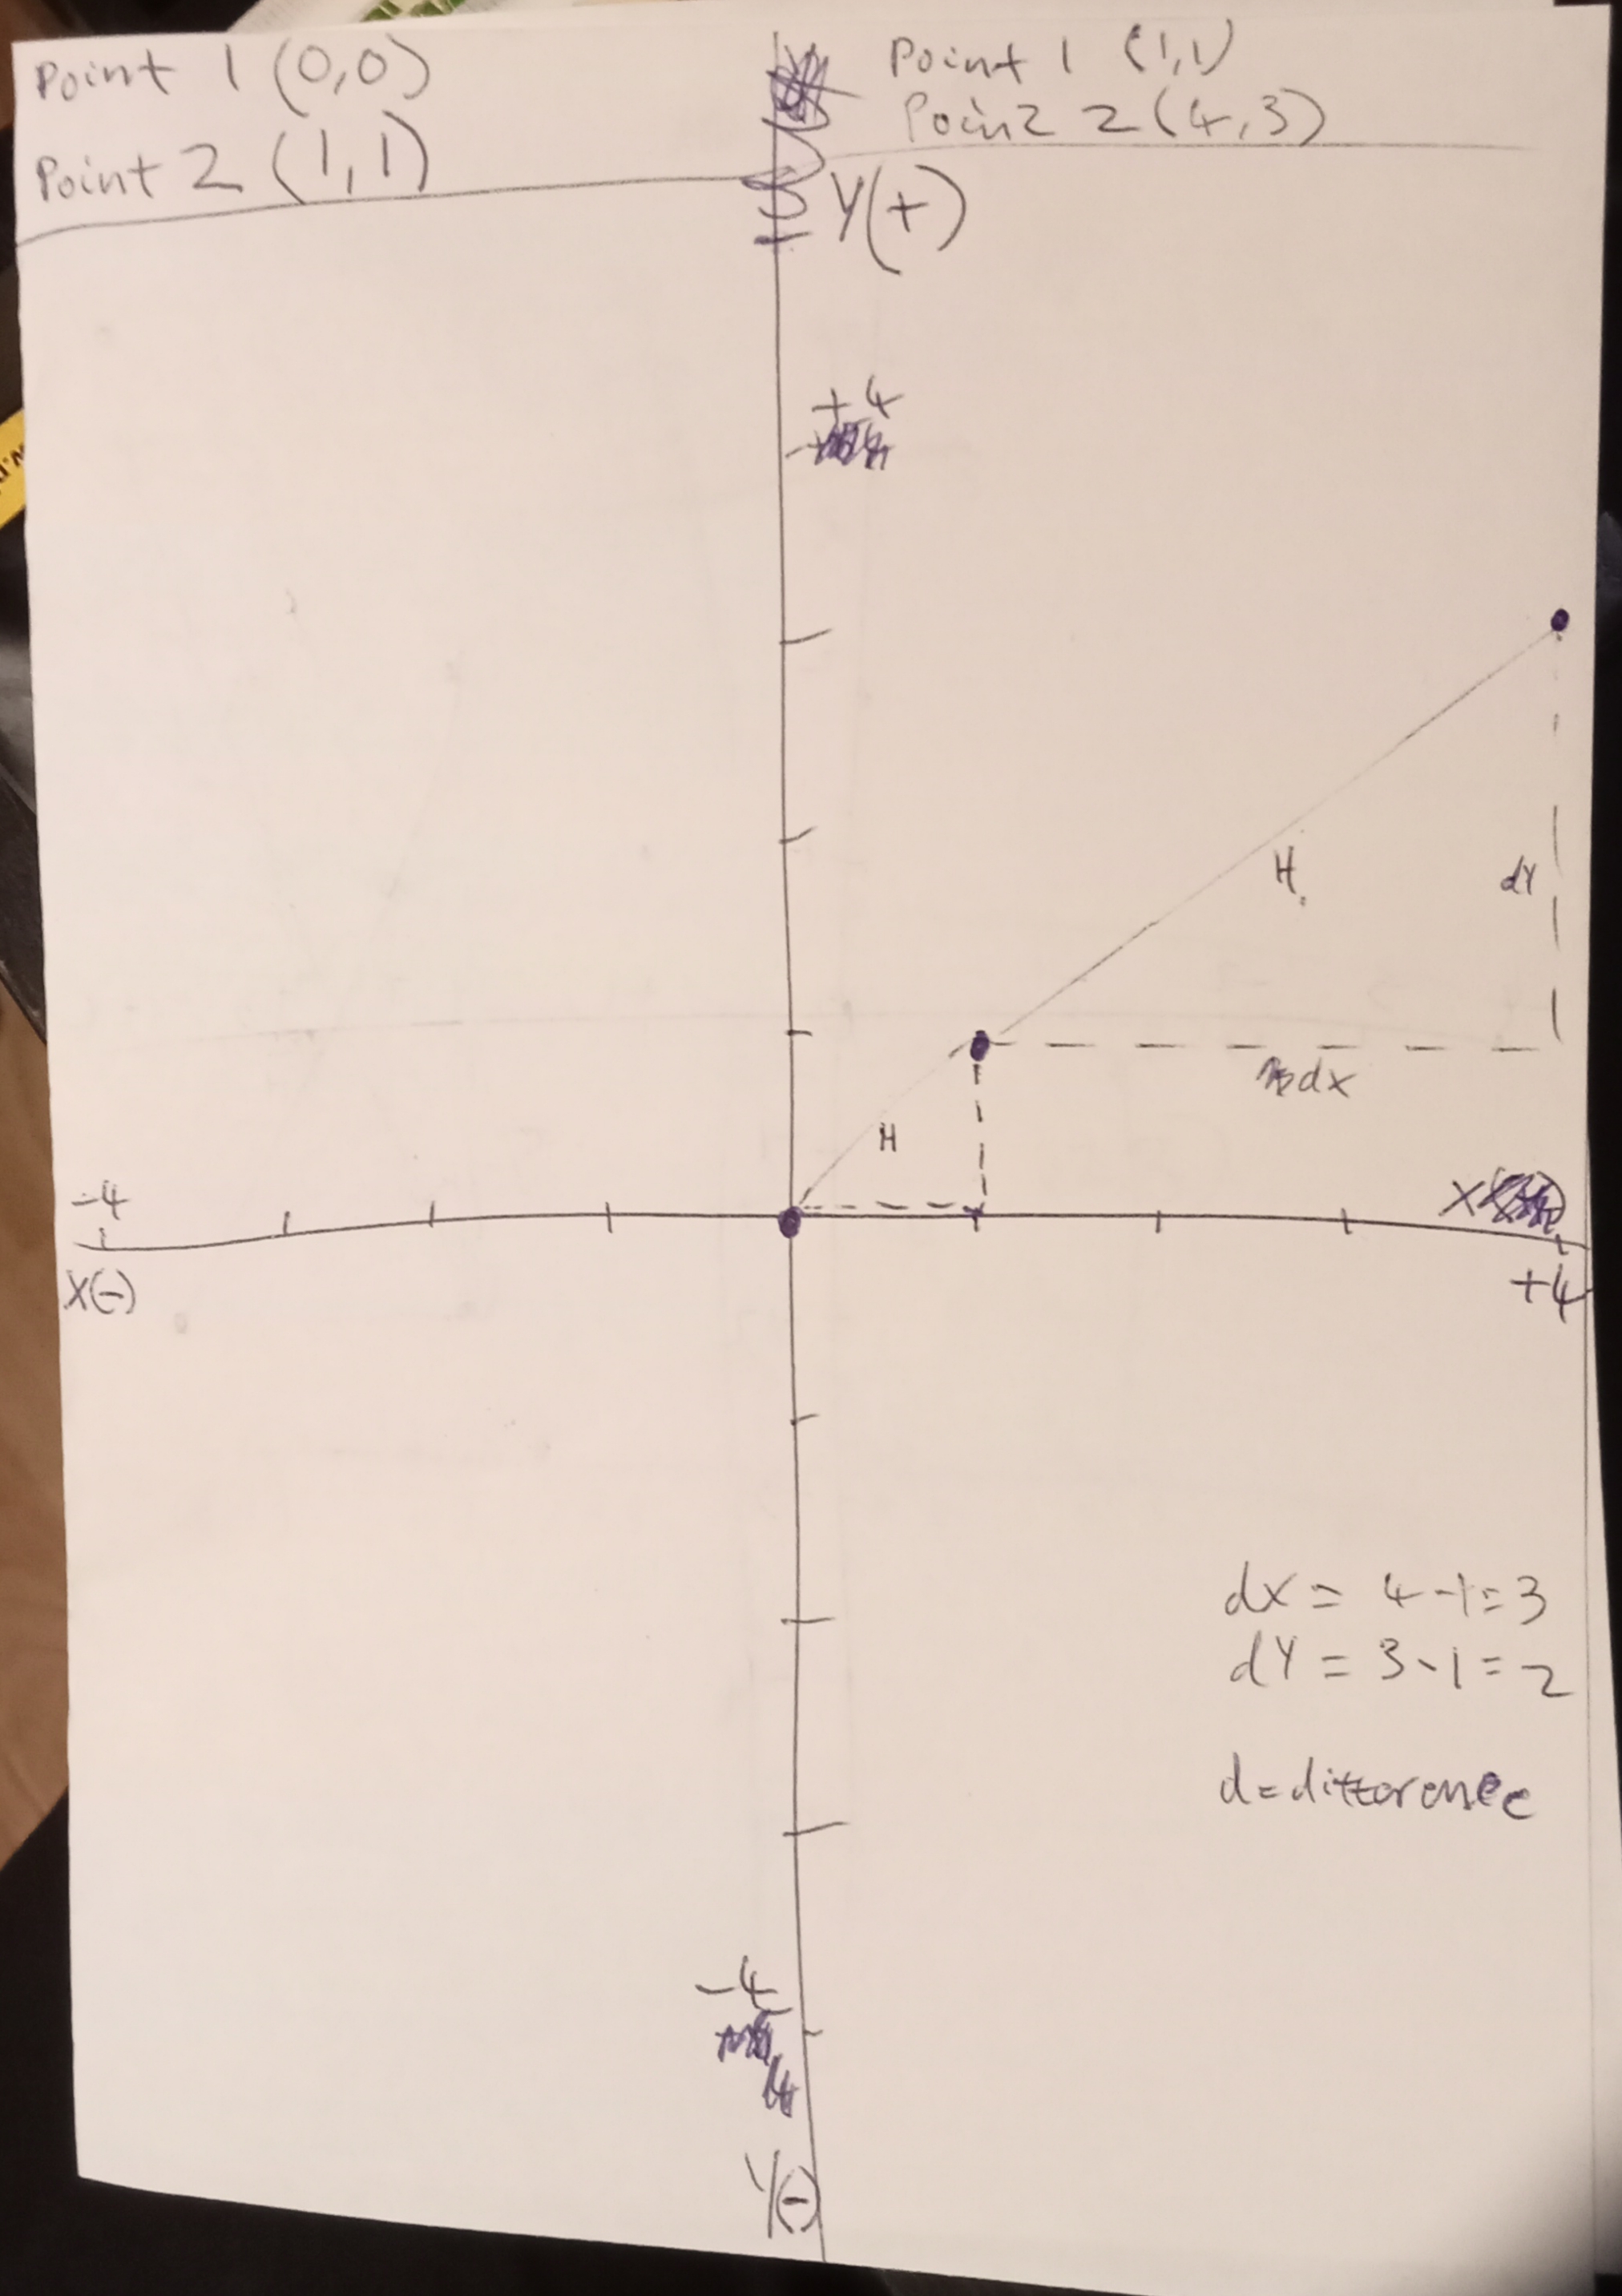 Point 1 (0,0)
Point 2 (1,1)
Point 1 (1,1)
Poin2 2 (4,3)
Y(+)
+4
H
dY
dx
H
-4
X
X(-)
+4
dX = 4-1=3
dY = 3-1=2
d=difference
-4
Y(-)